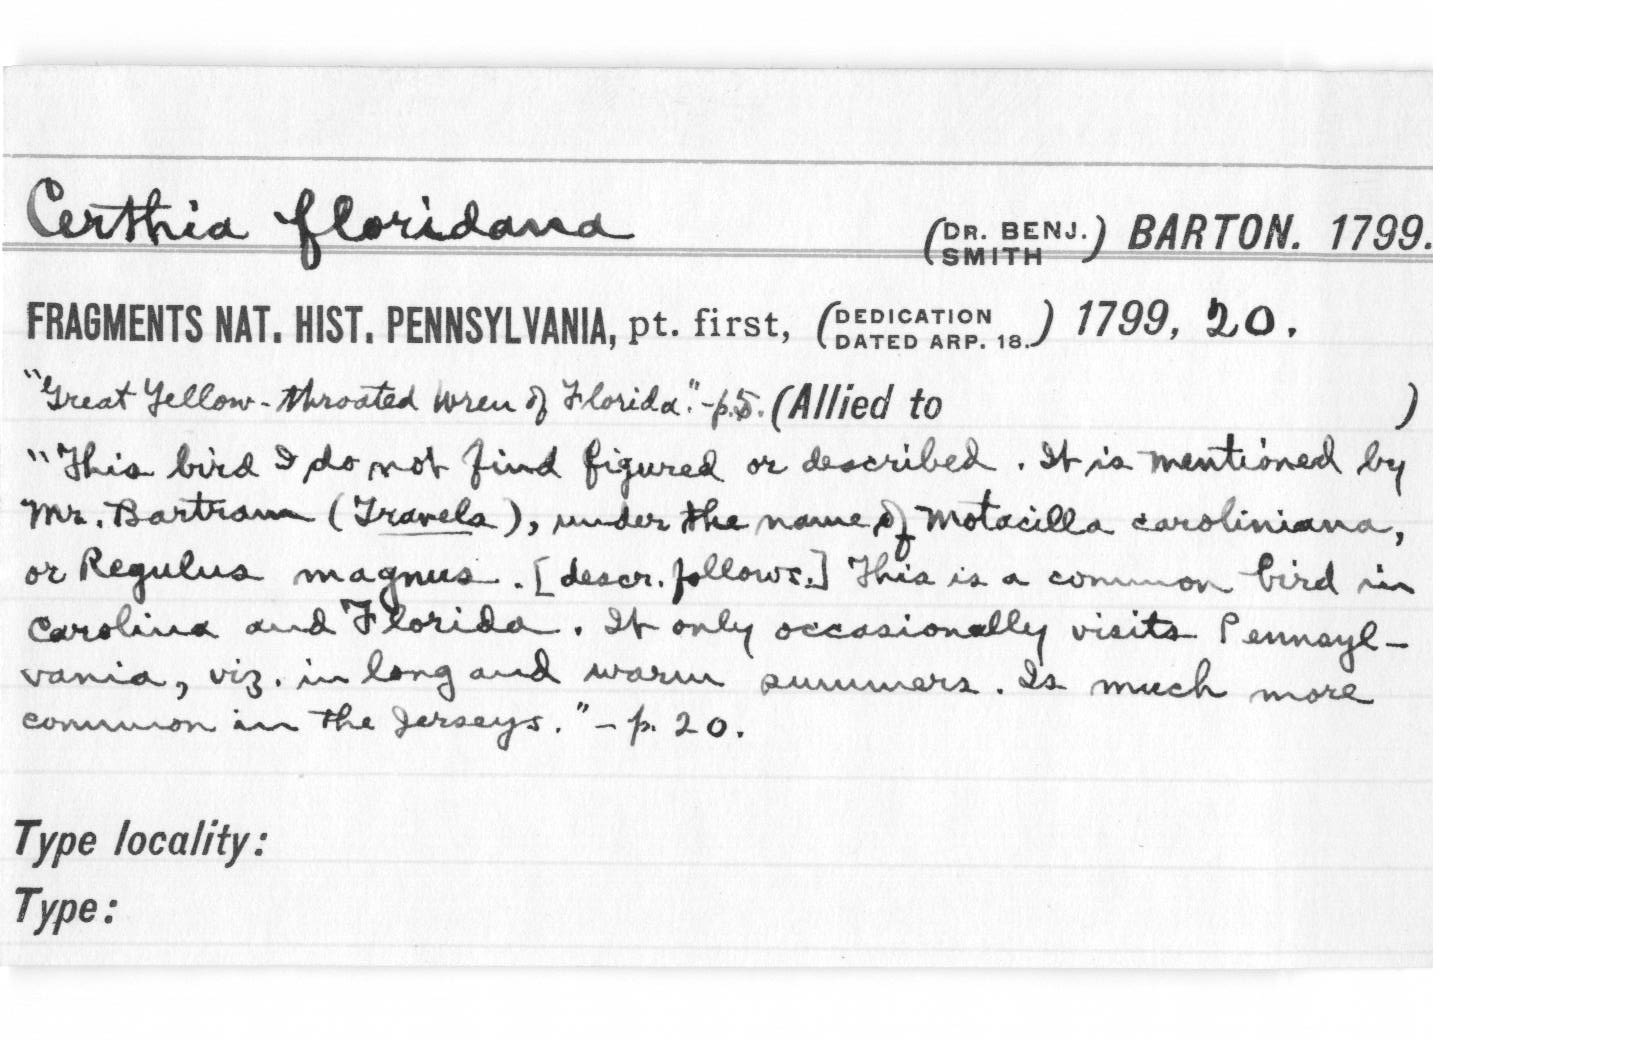 Certhia floridana (DR. BENJ. SMITH) BARTON. 1799.
FRAGMENTS NAT. HIST. PENNSYLVANIA, pt. first, (DEDICATION DATED ARP. 18.) 1799, 20.
"Great Yellow-throated Wren of Florida."-p.5. (Allied to )
"This bird I do not find figured or described. It is mentioned by
Mr. Bartram (Travels), under the name of Motacilla caroliniana,
or Regulus magnus. [descr. follows.] This is a common bird in
Carolina and Florida. It only occasionally visits Pennsyl-
vania, viz. in long and warm summers. Is much more
common in the Jerseys."-p. 20.
Type locality:
Type: